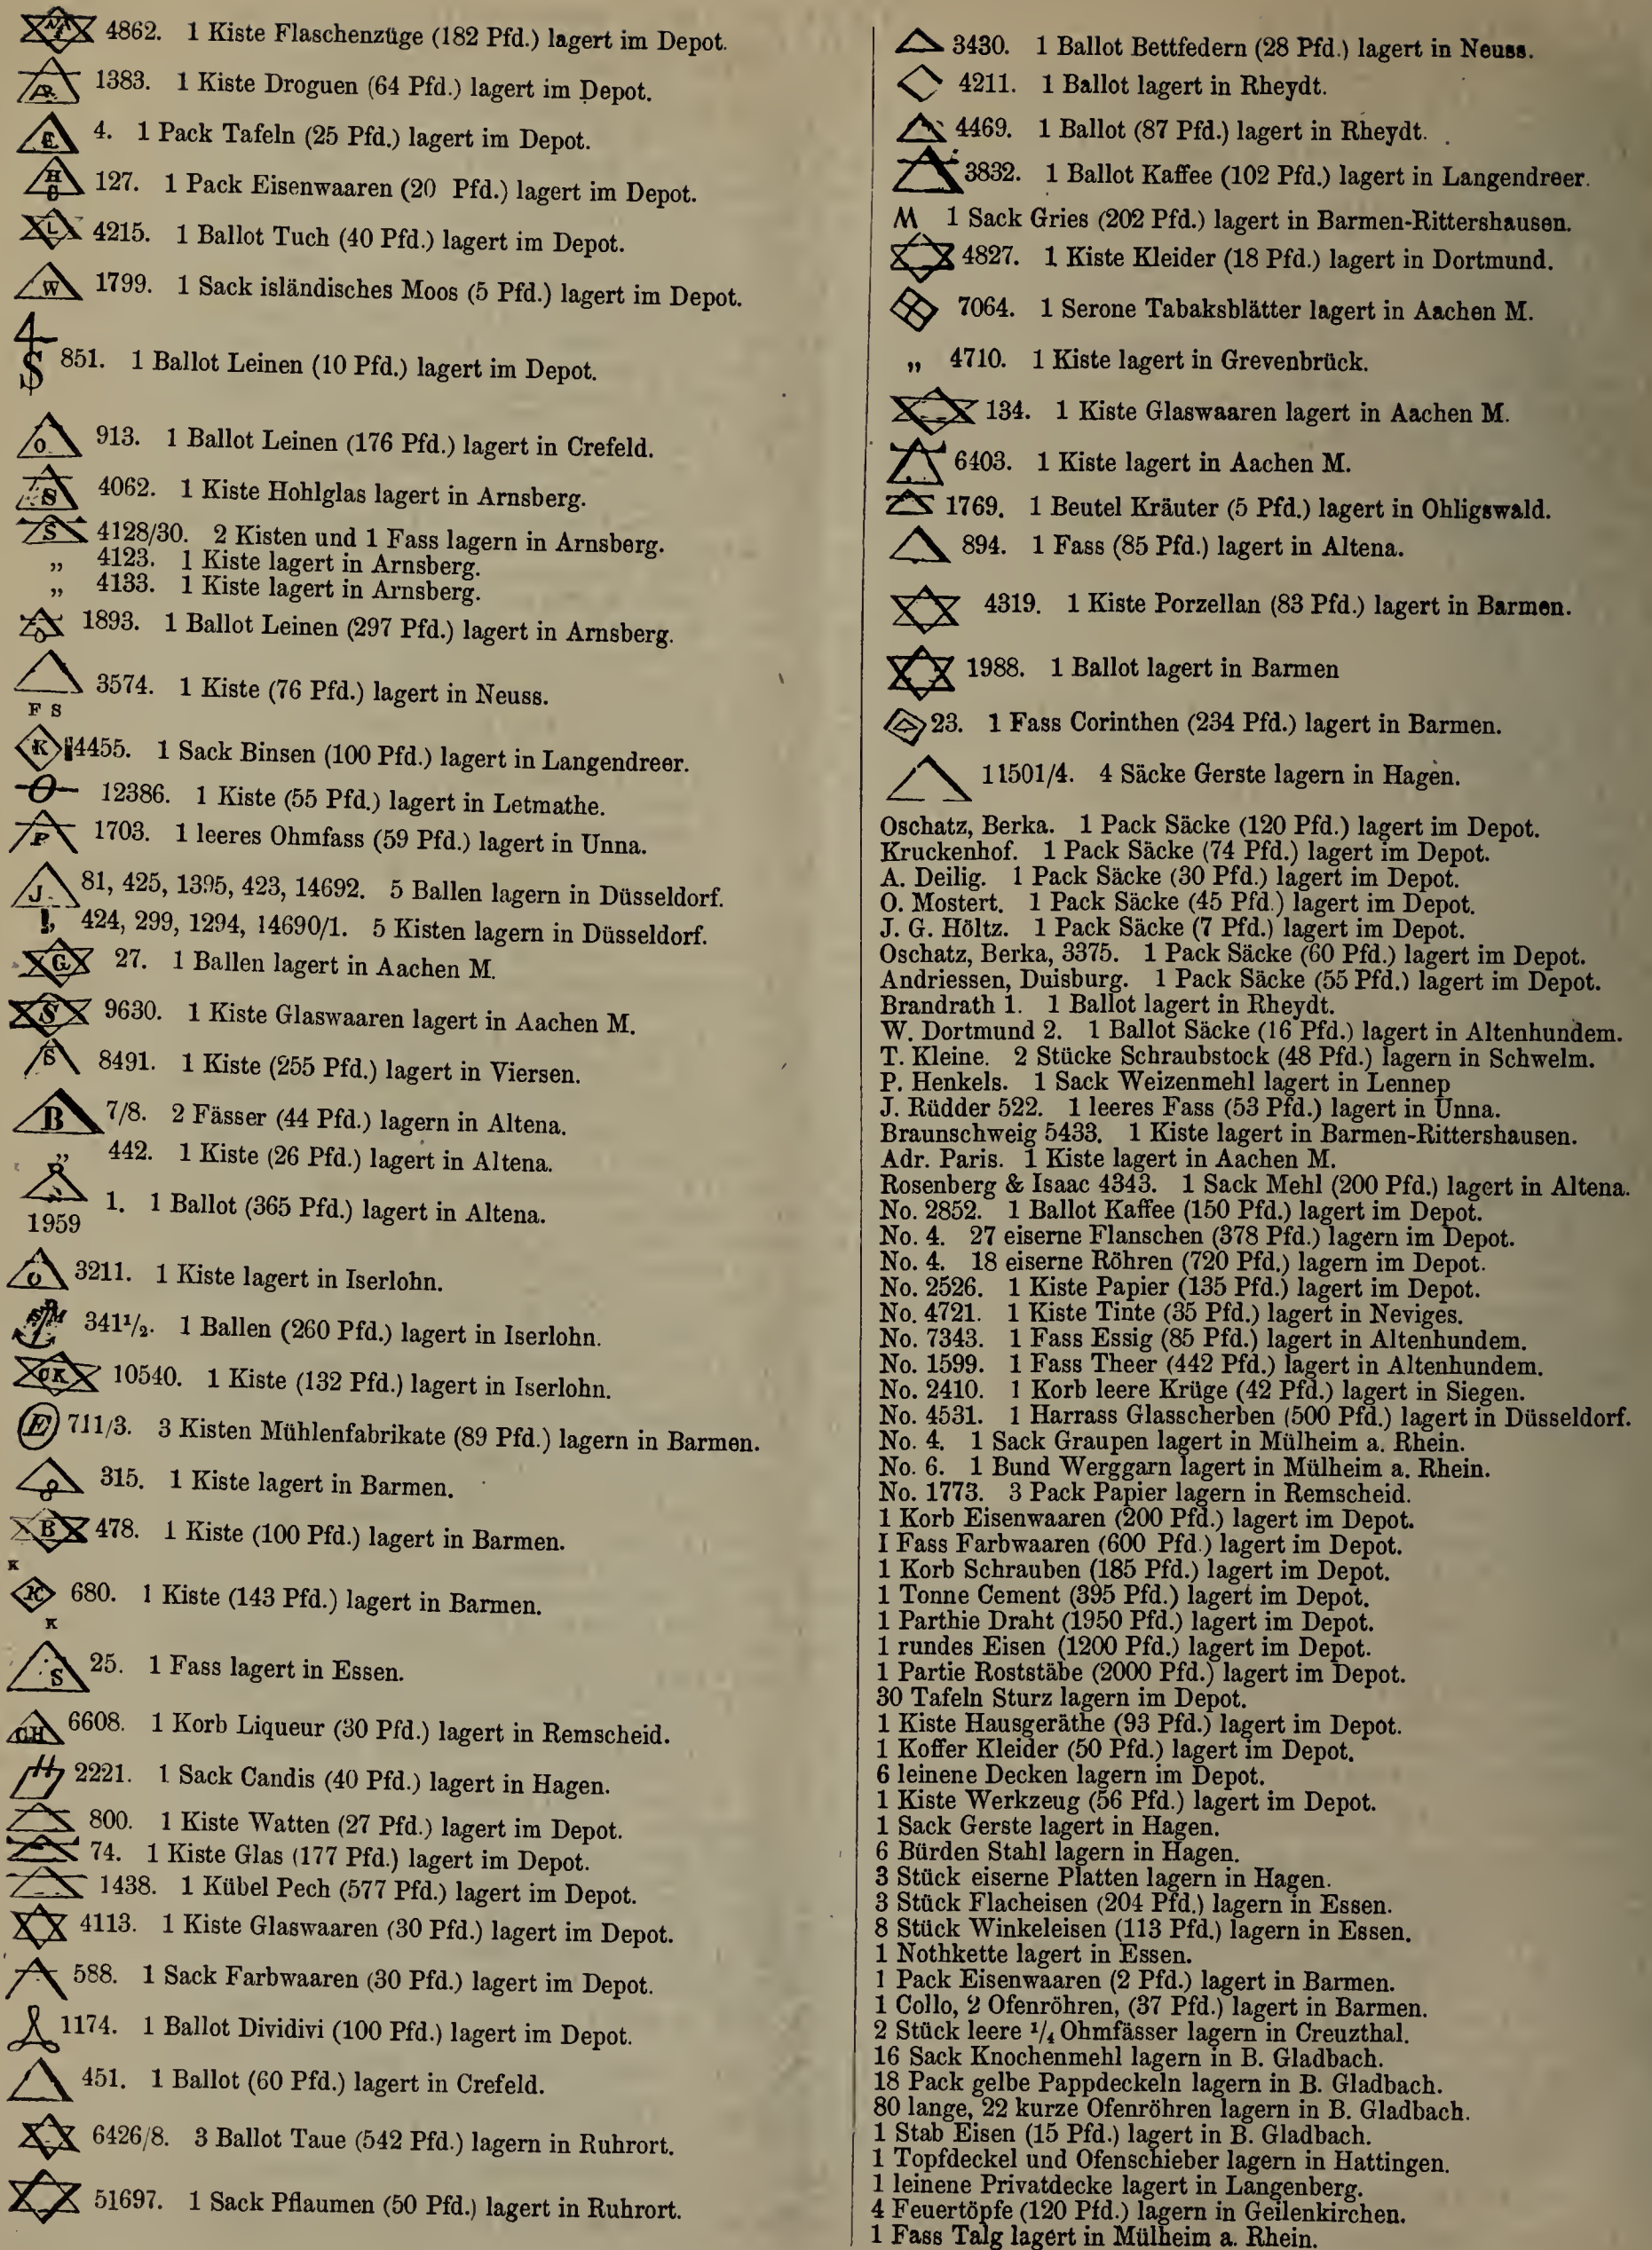 NA 4862. 1 Kiste Flaschenzüge (182 Pfd.) lagert im Depot.
1383. 1 Kiste Droguen (64 Pfd.) lagert im Depot.
4. 1 Pack Tafeln (25 Pfd.) lagert im Depot.
H C 127. 1 Pack Eisenwaaren (20 Pfd.) lagert im Depot.
L 4215. 1 Ballot Tuch (40 Pfd.) lagert im Depot.
W 1799. 1 Sack isländisches Moos (5 Pfd.) lagert im Depot.
4 S 851. 1 Ballot Leinen (10 Pfd.) lagert im Depot.
O 913. 1 Ballot Leinen (176 Pfd.) lagert in Crefeld.
S 4062. 1 Kiste Hohlglas lagert in Arnsberg.
S 4128/30. 2 Kisten und 1 Fass lagern in Arnsberg.
„ 4123. 1 Kiste lagert in Arnsberg.
„ 4133. 1 Kiste lagert in Arnsberg.
O 1893. 1 Ballot Leinen (297 Pfd.) lagert in Arnsberg.
3574. 1 Kiste (76 Pfd.) lagert in Neuss.
F S
K 4455. 1 Sack Binsen (100 Pfd.) lagert in Langendreer.
12386. 1 Kiste (55 Pfd.) lagert in Letmathe.
P 1703. 1 leeres Ohmfass (59 Pfd.) lagert in Unna.
J. 81, 425, 1395, 423, 14692. 5 Ballen lagern in Düsseldorf.
424, 299, 1294, 14690/1. 5 Kisten lagern in Düsseldorf.
G 27. 1 Ballen lagert in Aachen M.
S 9630. 1 Kiste Glaswaaren lagert in Aachen M.
S 8491. 1 Kiste (255 Pfd.) lagert in Viersen.
B 7/8. 2 Fässer (44 Pfd.) lagern in Altena.
„ 442. 1 Kiste (26 Pfd.) lagert in Altena.
1. 1 Ballot (365 Pfd.) lagert in Altena.
1959
O 3211. 1 Kiste lagert in Iserlohn.
341½. 1 Ballen (260 Pfd.) lagert in Iserlohn.
CK 10540. 1 Kiste (132 Pfd.) lagert in Iserlohn.
E 711/3. 3 Kisten Mühlenfabrikate (89 Pfd.) lagern in Barmen.
315. 1 Kiste lagert in Barmen.
B 478. 1 Kiste (100 Pfd.) lagert in Barmen.
K
K 680. 1 Kiste (143 Pfd.) lagert in Barmen.
K
S 25. 1 Fass lagert in Essen.
GH 6608. 1 Korb Liqueur (30 Pfd.) lagert in Remscheid.
H 2221. 1 Sack Candis (40 Pfd.) lagert in Hagen.
800. 1 Kiste Watten (27 Pfd.) lagert im Depot.
74. 1 Kiste Glas (177 Pfd.) lagert im Depot.
1438. 1 Kübel Pech (577 Pfd.) lagert im Depot.
4113. 1 Kiste Glaswaaren (30 Pfd.) lagert im Depot.
588. 1 Sack Farbwaaren (30 Pfd.) lagert im Depot.
1174. 1 Ballot Dividivi (100 Pfd.) lagert im Depot.
451. 1 Ballot (60 Pfd.) lagert in Crefeld.
6426/8. 3 Ballot Taue (542 Pfd.) lagern in Ruhrort.
51697. 1 Sack Pflaumen (50 Pfd.) lagert in Ruhrort.
3430. 1 Ballot Bettfedern (28 Pfd.) lagert in Neuss.
4211. 1 Ballot lagert in Rheydt.
4469. 1 Ballot (87 Pfd.) lagert in Rheydt.
3832. 1 Ballot Kaffee (102 Pfd.) lagert in Langendreer.
M 1 Sack Gries (202 Pfd.) lagert in Barmen-Rittershausen.
4827. 1 Kiste Kleider (18 Pfd.) lagert in Dortmund.
7064. 1 Serone Tabaksblätter lagert in Aachen M.
„ 4710. 1 Kiste lagert in Grevenbrück.
134. 1 Kiste Glaswaaren lagert in Aachen M.
6403. 1 Kiste lagert in Aachen M.
1769. 1 Beutel Kräuter (5 Pfd.) lagert in Ohligswald.
894. 1 Fass (85 Pfd.) lagert in Altena.
4319. 1 Kiste Porzellan (83 Pfd.) lagert in Barmen.
1988. 1 Ballot lagert in Barmen
23. 1 Fass Corinthen (234 Pfd.) lagert in Barmen.
11501/4. 4 Säcke Gerste lagern in Hagen.
Oschatz, Berka. 1 Pack Säcke (120 Pfd.) lagert im Depot.
Kruckenhof. 1 Pack Säcke (74 Pfd.) lagert im Depot.
A. Deilig. 1 Pack Säcke (30 Pfd.) lagert im Depot.
O. Mostert. 1 Pack Säcke (45 Pfd.) lagert im Depot.
J. G. Höltz. 1 Pack Säcke (7 Pfd.) lagert im Depot.
Oschatz, Berka, 3375. 1 Pack Säcke (60 Pfd.) lagert im Depot.
Andriessen, Duisburg. 1 Pack Säcke (55 Pfd.) lagert im Depot.
Brandrath 1. 1 Ballot lagert in Rheydt.
W. Dortmund 2. 1 Ballot Säcke (16 Pfd.) lagert in Altenhundem.
T. Kleine. 2 Stücke Schraubstock (48 Pfd.) lagern in Schwelm.
P. Henkels. 1 Sack Weizenmehl lagert in Lennep
J. Rüdder 522. 1 leeres Fass (53 Pfd.) lagert in Unna.
Braunschweig 5433. 1 Kiste lagert in Barmen-Rittershausen.
Adr. Paris. 1 Kiste lagert in Aachen M.
Rosenberg & Isaac 4343. 1 Sack Mehl (200 Pfd.) lagert in Altena.
No. 2852. 1 Ballot Kaffee (150 Pfd.) lagert im Depot.
No. 4. 27 eiserne Flanschen (378 Pfd.) lagern im Depot.
No. 4. 18 eiserne Röhren (720 Pfd.) lagern im Depot.
No. 2526. 1 Kiste Papier (135 Pfd.) lagert im Depot.
No. 4721. 1 Kiste Tinte (35 Pfd.) lagert in Neviges.
No. 7343. 1 Fass Essig (85 Pfd.) lagert in Altenhundem.
No. 1599. 1 Fass Theer (442 Pfd.) lagert in Altenhundem.
No. 2410. 1 Korb leere Krüge (42 Pfd.) lagert in Siegen.
No. 4531. 1 Harrass Glasscherben (500 Pfd.) lagert in Düsseldorf.
No. 4. 1 Sack Graupen lagert in Mülheim a. Rhein.
No. 6. 1 Bund Werggarn lagert in Mülheim a. Rhein.
No. 1773. 3 Pack Papier lagern in Remscheid.
1 Korb Eisenwaaren (200 Pfd.) lagert im Depot.
I Fass Farbwaaren (600 Pfd.) lagert im Depot.
1 Korb Schrauben (185 Pfd.) lagert im Depot.
1 Tonne Cement (395 Pfd.) lagert im Depot.
1 Parthie Draht (1950 Pfd.) lagert im Depot.
1 rundes Eisen (1200 Pfd.) lagert im Depot.
1 Partie Roststäbe (2000 Pfd.) lagert im Depot.
30 Tafeln Sturz lagern im Depot.
1 Kiste Hausgeräthe (93 Pfd.) lagert im Depot.
1 Koffer Kleider (50 Pfd.) lagert im Depot.
6 leinene Decken lagern im Depot.
1 Kiste Werkzeug (56 Pfd.) lagert im Depot.
1 Sack Gerste lagert in Hagen.
6 Bürden Stahl lagern in Hagen.
3 Stück eiserne Platten lagern in Hagen.
3 Stück Flacheisen (204 Pfd.) lagern in Essen.
8 Stück Winkeleisen (113 Pfd.) lagern in Essen.
1 Nothkette lagert in Essen.
1 Pack Eisenwaaren (2 Pfd.) lagert in Barmen.
1 Collo, 2 Ofenröhren, (37 Pfd.) lagert in Barmen.
2 Stück leere ¼ Ohmfässer lagern in Creuzthal.
16 Sack Knochenmehl lagern in B. Gladbach.
18 Pack gelbe Pappdeckeln lagern in B. Gladbach.
80 lange, 22 kurze Ofenröhren lagern in B. Gladbach.
1 Stab Eisen (15 Pfd.) lagert in B. Gladbach.
1 Topfdeckel und Ofenschieber lagern in Hattingen.
1 leinene Privatdecke lagert in Langenberg.
4 Feuertöpfe (120 Pfd.) lagern in Geilenkirchen.
1 Fass Talg lagert in Mülheim a. Rhein.